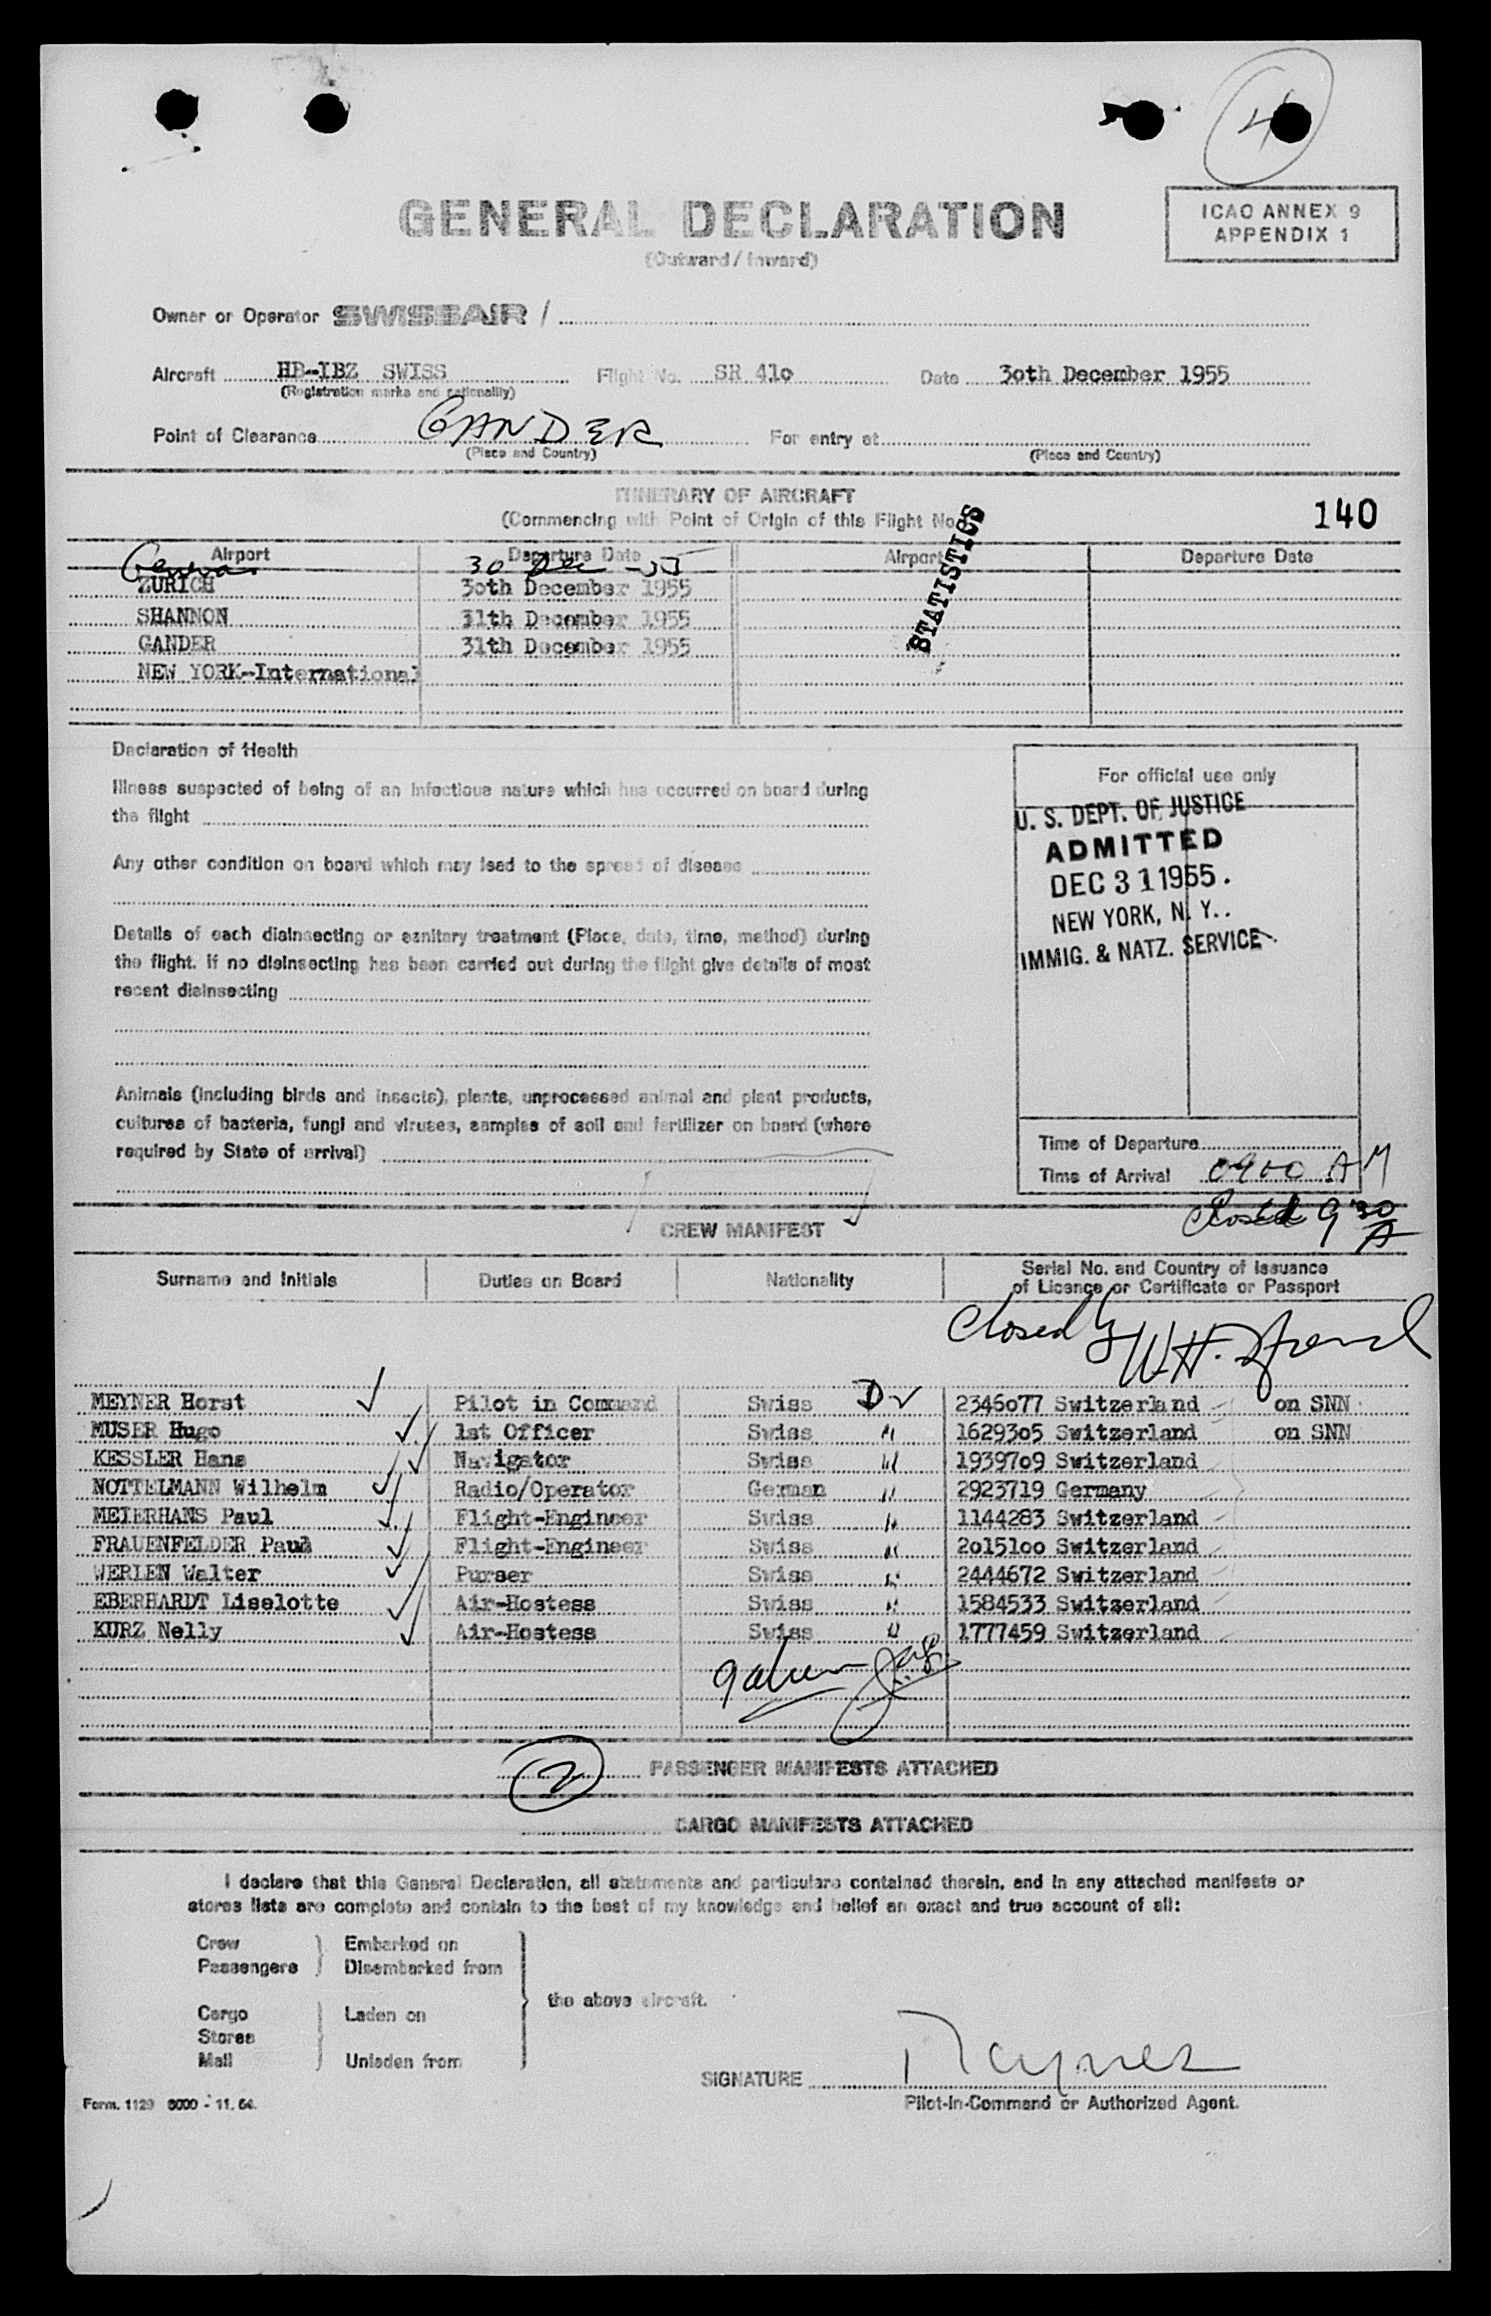 4
GENERAL DECLARATION
(Outward / Inward)
ICAO ANNEX 9
APPENDIX 1
Owner or Operator SWISSAIR /
Aircraft HB-IBZ SWISS Flight No. SR 41o Date 3oth December 1955
(Registration marks and nationality)
Point of Clearance GANDER For entry at
(Place and Country) (Place and Country)
ITINERARY OF AIRCRAFT
(Commencing with Point of Origin of this Flight No.)
140
STATISTICS
Airport Departure Date Airport Departure Date
Geneva 30 Dec -55
ZURICH 3oth December 1955
SHANNON 31th December 1955
GANDER 31th December 1955
NEW YORK-International
Declaration of Health
Illness suspected of being of an infectious nature which has occurred on board during
the flight
Any other condition on board which may lead to the spread of disease
Details of each disinsecting or sanitary treatment (Place, date, time, method) during
the flight. If no disinsecting has been carried out during the flight give details of most
recent disinsecting
Animals (including birds and insects), plants, unprocessed animal and plant products,
cultures of bacteria, fungi and viruses, samples of soil and fertilizer on board (where
required by State of arrival)
For official use only
U. S. DEPT. OF JUSTICE
ADMITTED
DEC 31 1955.
NEW YORK, N. Y..
IMMIG. & NATZ. SERVICE
Time of Departure
Time of Arrival 0900 AM
Closed 9 30 A
CREW MANIFEST
Surname and Initials Duties on Board Nationality Serial No. and Country of Issuance
of Licence or Certificate or Passport
Closed by W.H.
MEYNER Horst Pilot in Command Swiss D 2346o77 Switzerland on SNN
MUSER Hugo 1st Officer Swiss " 16293o5 Switzerland on SNN
KESSLER Hans Navigator Swiss " 19397o9 Switzerland
NOTTELMANN Wilhelm Radio/Operator German " 2923719 Germany
MEIERHANS Paul Flight-Engineer Swiss " 1144283 Switzerland
FRAUENFELDER Paul Flight-Engineer Swiss " 2o151oo Switzerland
WERLEN Walter Purser Swiss " 2444672 Switzerland
EBERHARDT Liselotte Air-Hostess Swiss " 1584533 Switzerland
KURZ Nelly Air-Hostess Swiss " 1777459 Switzerland
2 PASSENGER MANIFESTS ATTACHED
CARGO MANIFESTS ATTACHED
I declare that this General Declaration, all statements and particulars contained therein, and in any attached manifests or
stores lists are complete and contain to the best of my knowledge and belief an exact and true account of all:
Crew Embarked on
Passengers Disembarked from
the above aircraft.
Cargo Laden on
Stores
Mail Unladen from
SIGNATURE Meyner
Pilot-in-Command or Authorized Agent.
Form. 1129 5000 - 11. 54.